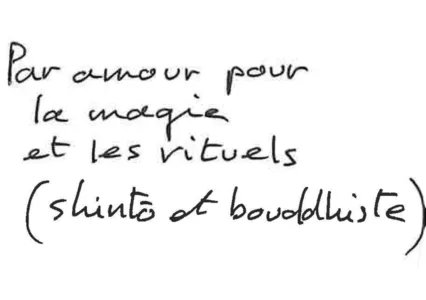 Par amour pour
la magie
et les rituels
(shintō et bouddhiste)